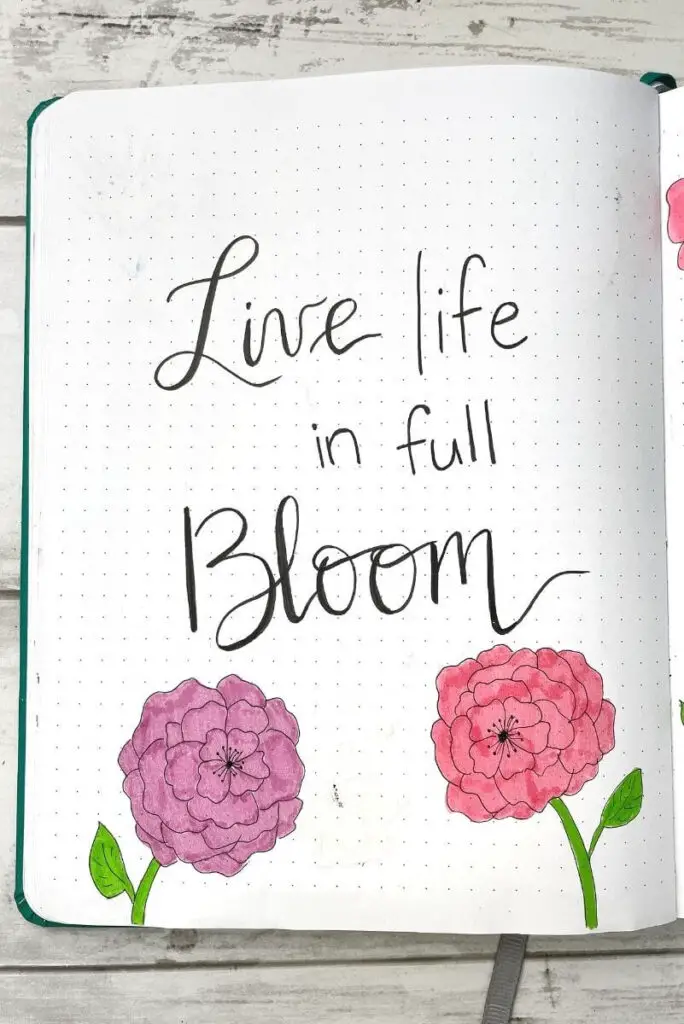 Live life
in full
Bloom